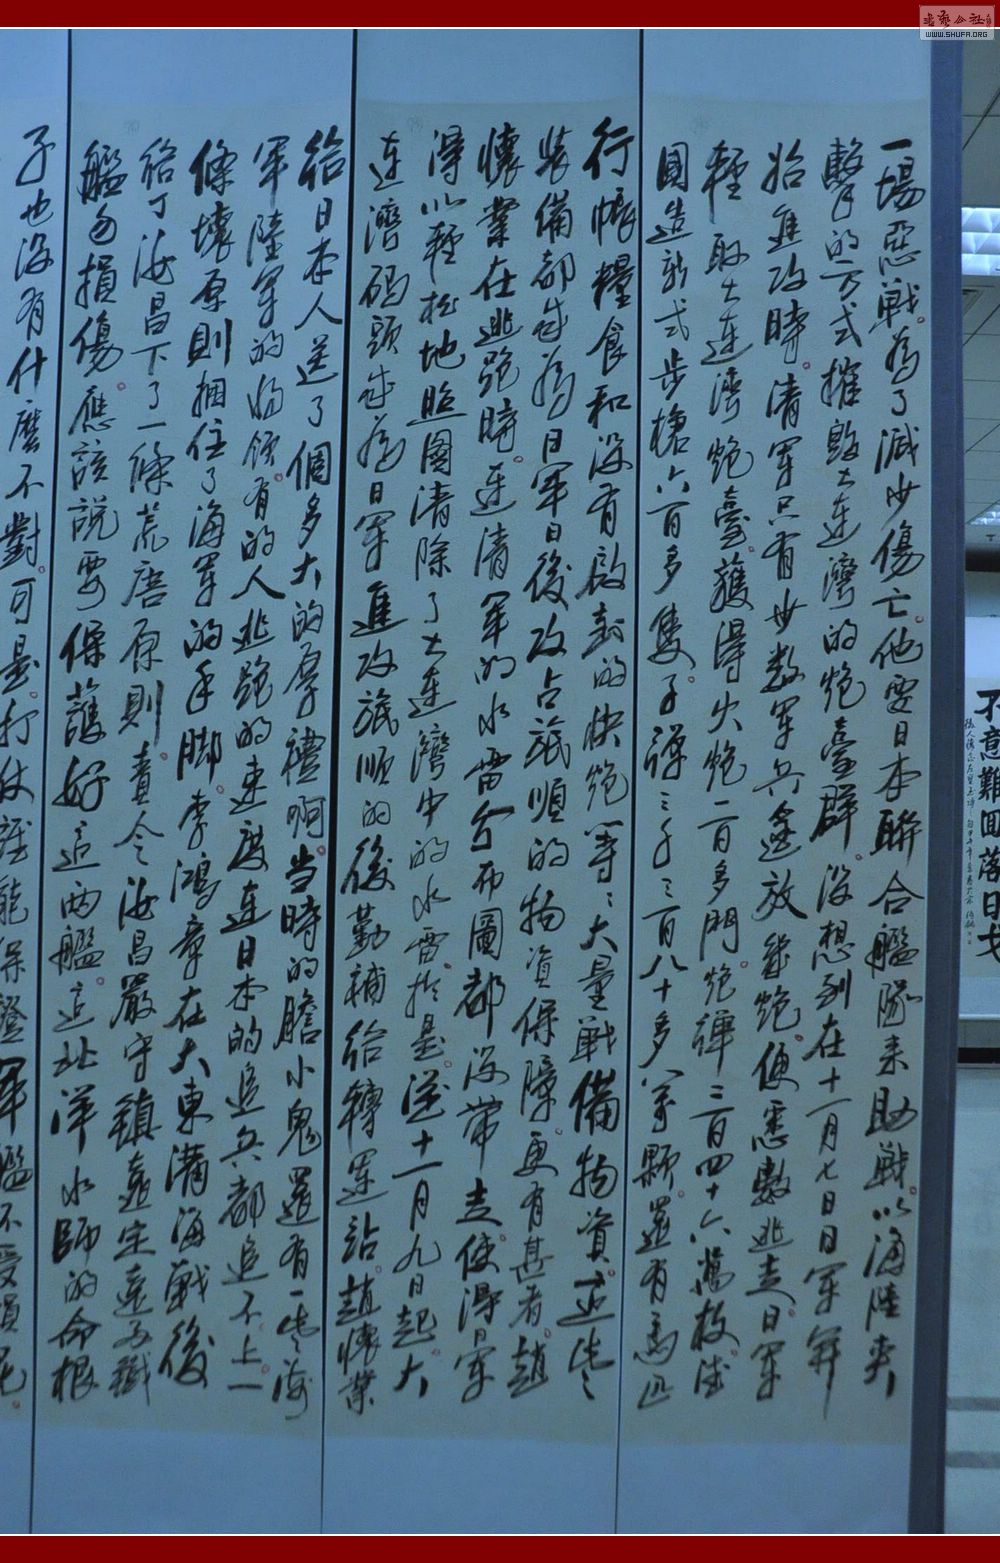 一場惡戰。為了減少傷亡。他要日本聯合艦隊來助戰。以海陸夾
擊的方式摧毀大連灣的炮臺群。沒想到在十一月七日日軍開
始進攻時。清軍只有少數軍兵逢放幾炮。便悉數逃走。日軍
輕取大連灣炮臺。獲得火炮一百多門。炮彈二百四十六萬枚。德
國造新式步槍六百多隻。子彈三千三百八十多萬顆。還有馬匹
行帳糧食和沒有啟封的快炮等等大量戰備物資。這些
裝備都成為日軍日後攻占旅順的物資保障。更有甚者。趙
懷業在逃跑時。連清軍的水雷分布圖都沒帶走。使得日軍
得以輕松地照圖清除了大連灣中的水雷。於是。從十一月九日起。大
連灣碼頭成為日軍進攻旅順的後勤補給轉運站。趙懷業
給日本人送了個多大的厚禮啊。當時的膽小鬼還有一些。海
軍陸軍的將領。有的人逃跑的速度連日本的追兵都追不上。一
條壞原則捆住了海軍的手脚。李鴻章在大東溝海戰後
給丁汝昌下了一條荒唐原則。責令汝昌嚴守鎮遠定遠兩鐵
艦勿損傷。應該說要保護好這兩艦。這北洋水師的命根
子也沒有什麼不對。可是。打仗誰能保證軍艦不受損呢。
不意難回落日戈
WWW.SHUFA.ORG